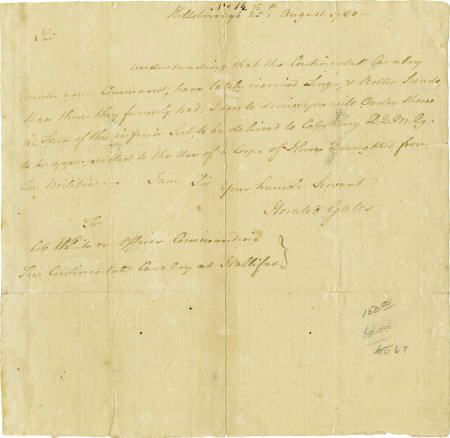 No 14.
Hillsborough 25th August 1780
Sir
Understanding that the Continental Cavalry
under your Command, have lately received Larger & Better Swords,
than those they formerly had, I am to desire you will Order those
in Store of the inferior Sort, to be delivered to Colo. Long D.Q.M.G.
to be appropriated to the Use of a Corps of Horse Draughted from
our Militia. I am Sir your humble Servant
Horatio Gates
To
Col. White or Officer Commanding
The Continental Cavalry at Hallifax
150 00